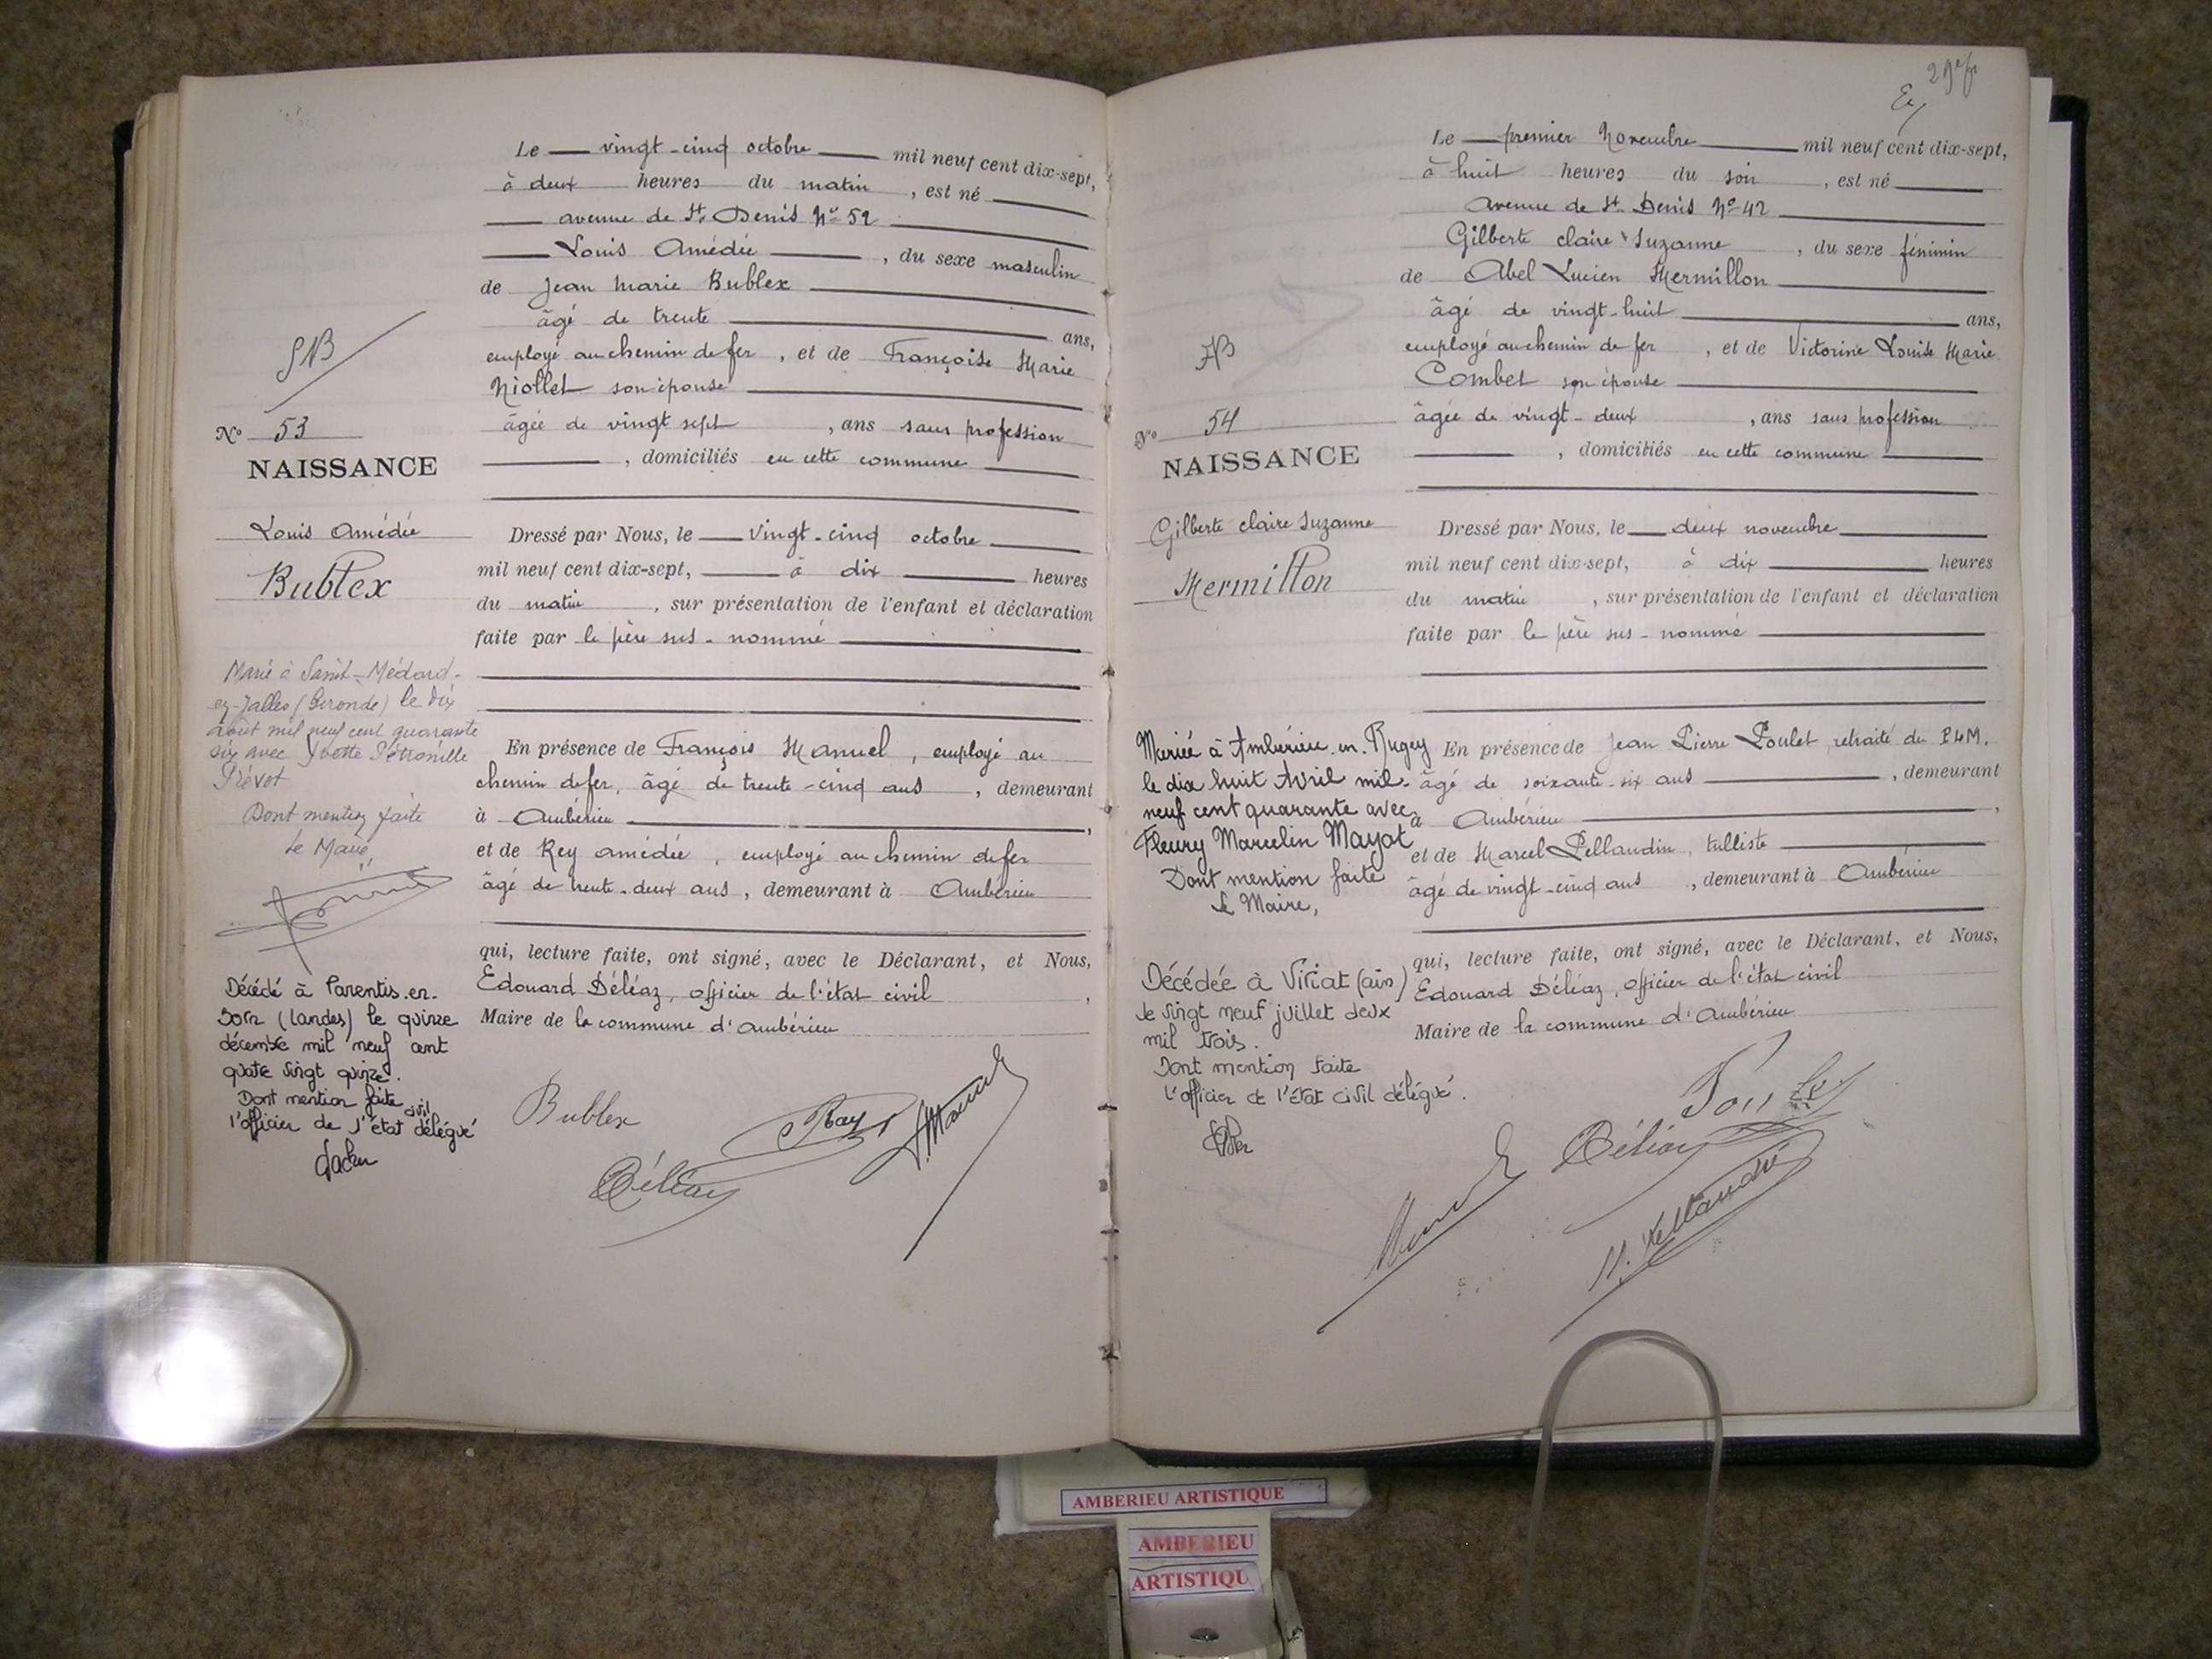 Le vingt-cinq octobre mil neuf cent dix-sept,
à deux heures du matin, est né
avenue de St Denis No 52
Louis Amédée, du sexe masculin
de Jean Marie Bublex
âgé de trente ans,
employé au chemin de fer, et de Françoise Marie
Niollet son épouse
âgée de vingt sept, ans sans profession
, domiciliés en cette commune
No 53
NAISSANCE
Louis Amédée
Bublex
Dressé par Nous, le vingt-cinq octobre
mil neuf cent dix-sept, à dix heures
du matin, sur présentation de l'enfant et déclaration
faite par le père sus-nommé
Marié à Saint-Médard-
en-Jalles (Gironde) le dix
août mil neuf cent quarante
six avec Yvette Pétronille
Prévot
Dont mention faite
Le Maire,
En présence de François Manuel, employé au
chemin de fer, âgé de trente-cinq ans, demeurant
à Ambérieu,
et de Rey amédée, employé au chemin de fer
âgé de trente-deux ans, demeurant à Ambérieu
qui, lecture faite, ont signé, avec le Déclarant, et Nous,
Edouard Déléaz, officier de l'état civil,
Maire de la commune d'Ambérieu
Décédé à Parentis-en-
Born (Landes) le quinze
décembre mil neuf cent
quatre vingt quinze.
Dont mention faite
l'officier de l'état civil délégué
Bublex
Rey
Déléaz
Manuel
Le premier Novembre mil neuf cent dix-sept,
à huit heures du soir, est né
Avenue de St Denis No 42
Gilberte claire Suzanne, du sexe féminin
de Abel Lucien Mermillon
âgé de vingt-huit ans,
employé au chemin de fer, et de Victorine Louise Marie
Combet son épouse
âgée de vingt-deux, ans sans profession
, domiciliés en cette commune
No 54
NAISSANCE
Gilberte claire Suzanne
Mermillon
Dressé par Nous, le deux novembre
mil neuf cent dix-sept, à dix heures
du matin, sur présentation de l'enfant et déclaration
faite par le père sus-nommé
Mariée à Ambérieu-en-Bugey
le dix huit Avril mil-
neuf cent quarante avec
Fleury Marcelin Mayot
Dont mention faite
Le Maire,
En présence de Jean Pierre Poulet, retraité du PLM.
âgé de soixante-six ans, demeurant
à Ambérieu,
et de Marcel Pellaudin, tulliste
âgé de vingt-cinq ans, demeurant à Ambérieu
qui, lecture faite, ont signé, avec le Déclarant, et Nous,
Edouard Déléaz, officier de l'état civil
Maire de la commune d'Ambérieu
Décédée à Viriat (ain)
le vingt neuf juillet deux
mil trois.
Dont mention faite
l'officier de l'état civil délégué.
Déléaz
AMBERIEU ARTISTIQUE
AMBERIEU
ARTISTIQU